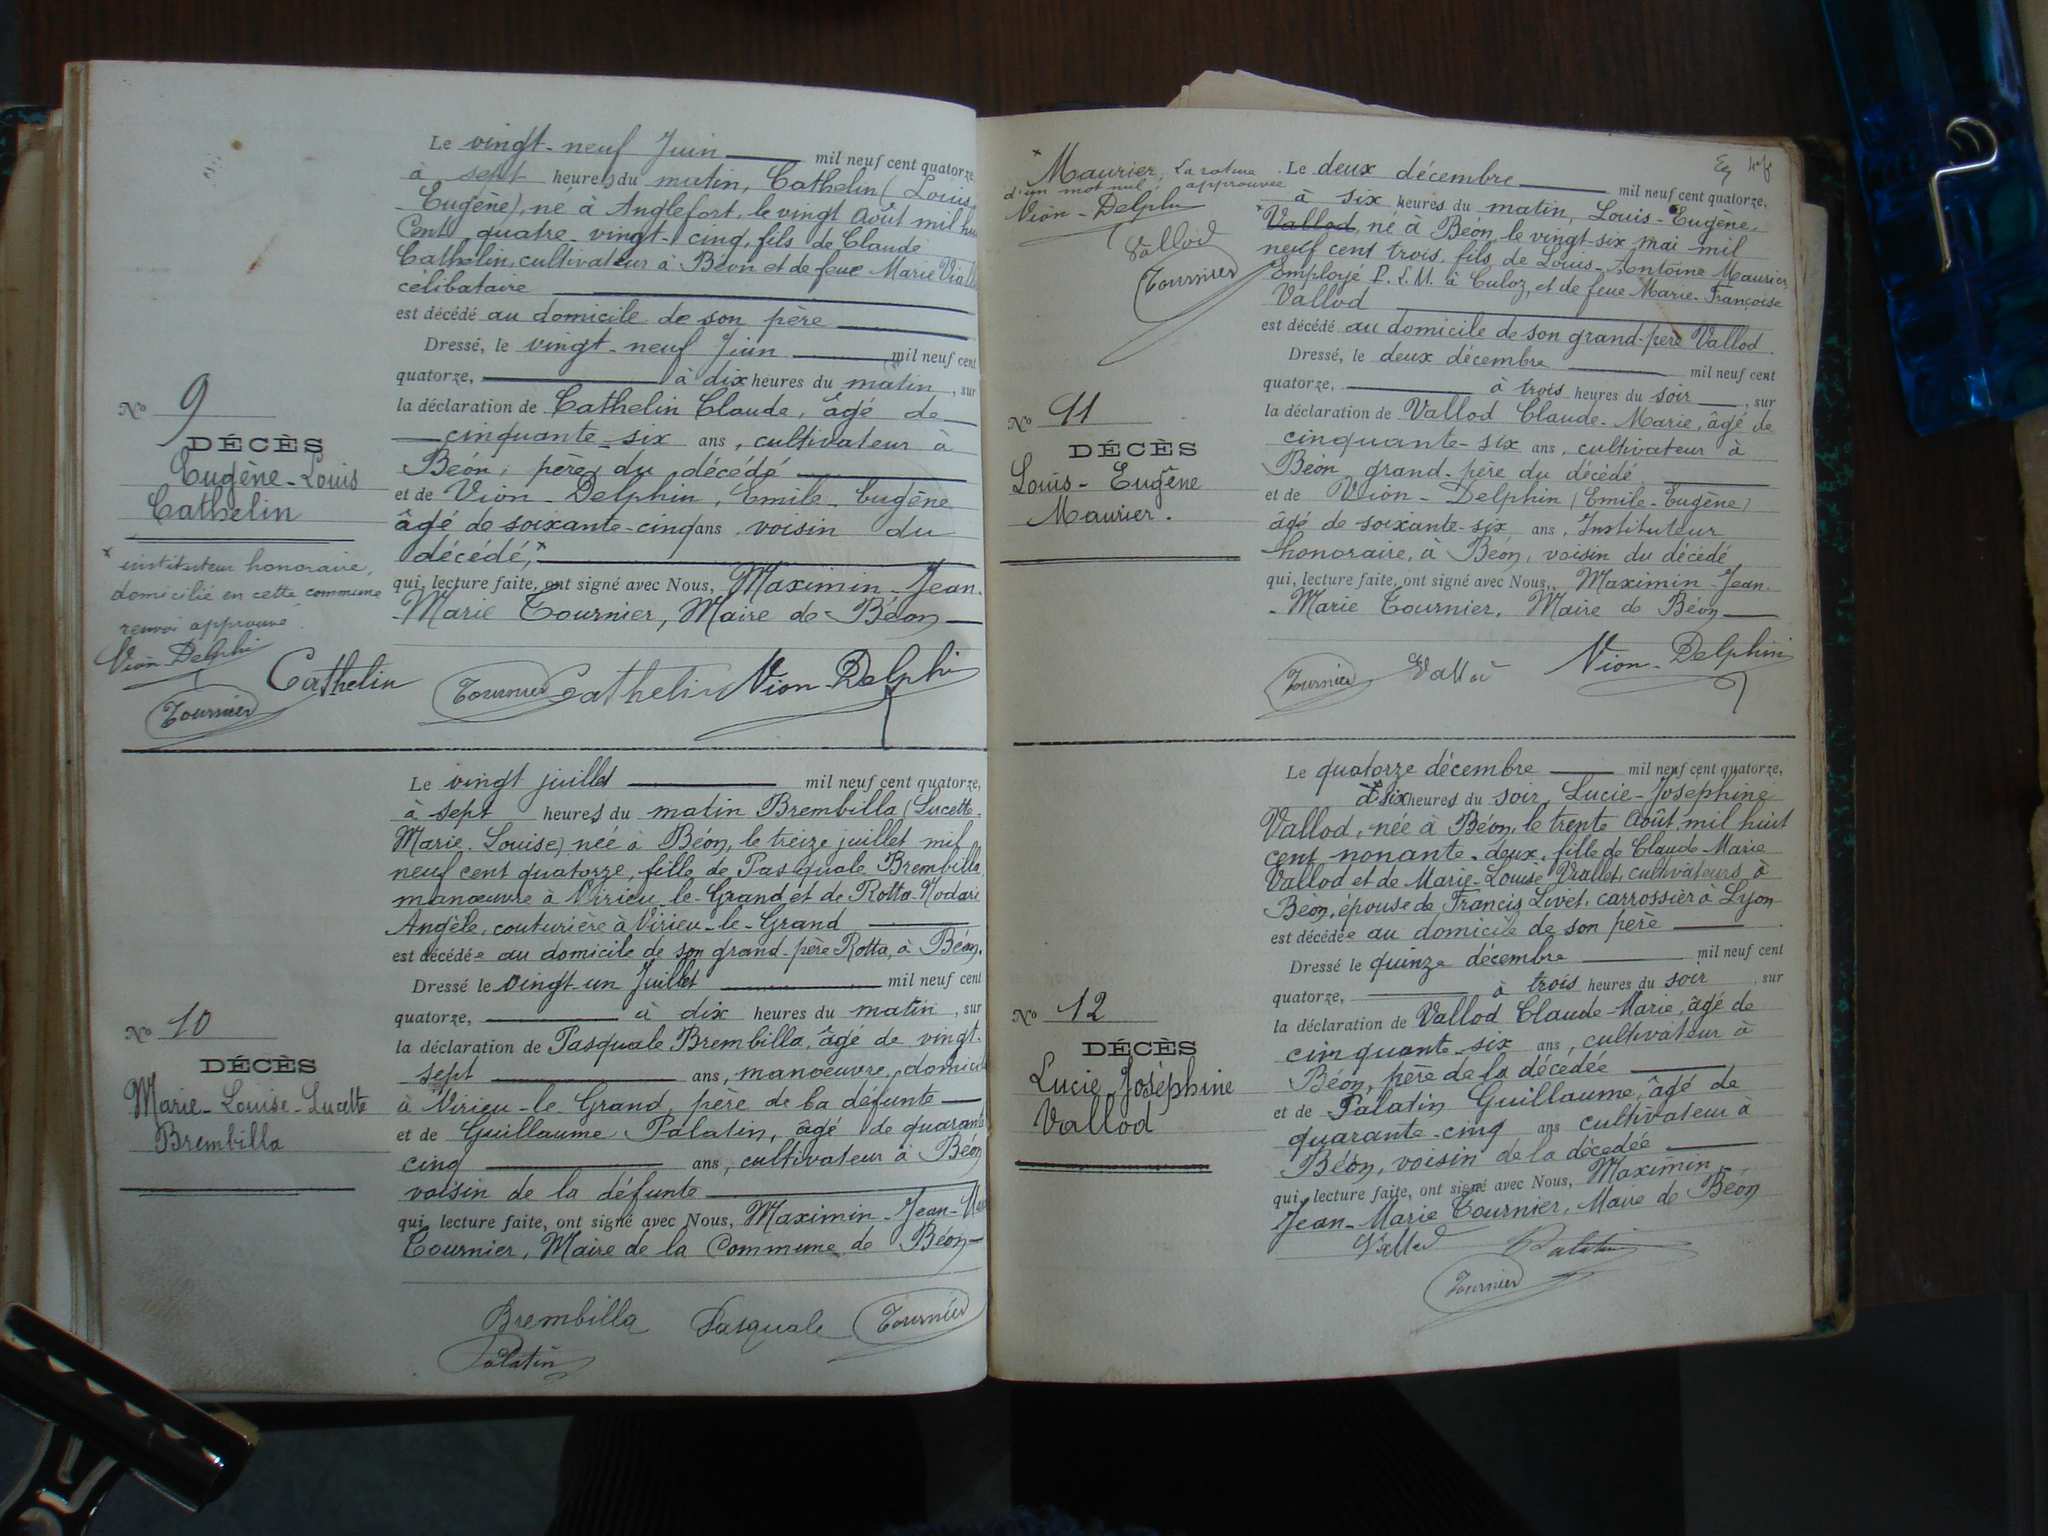 Le vingt-neuf Juin mil neuf cent quatorze,
à sept heures du matin, Cathelin (Louis
Eugène), né à Anglefort, le vingt Août mil hui
Cent quatre-vingt-cinq, fils de Claude
Cathelin, cultivateur à Béon et de feue Marie
célibataire
est décédé au domicile de son père
Dressé, le vingt-neuf Juin mil neuf cent
quatorze, à dix heures du matin, sur
la déclaration de Cathelin Claude, âgé de
cinquante-six ans, cultivateur à
Béon, père du décédé
et de Vion-Delphin, Emile Eugène
âgé de soixante-cinq ans voisin du
décédé, x
qui, lecture faite, ont signé avec Nous, Maximin-Jean-
Marie Tournier, Maire de Béon
Tournier Cathelin Vion-Delphi
N° 9
DÉCÈS
Eugène-Louis
Cathelin
x instituteur honoraire,
domicilié en cette commune
renvoi approuvé.
Vion-Delphi
Cathelin
Tournier
Le vingt juillet mil neuf cent quatorze,
à sept heures du matin Brembilla (Lucette-
Marie-Louise) née à Béon, le treize juillet mil
neuf cent quatorze, fille de Pasquale Brembilla,
manœuvre à Virieu-le-Grand et de Rotta-Nodari
Angèle, couturière à Virieu-le-Grand
est décédée au domicile de son grand-père Rotta, à Béon.
Dressé le vingt-un Juillet mil neuf cent
quatorze, à dix heures du matin, sur
la déclaration de Pasquale Brembilla, âgé de vingt-
sept ans, manœuvre, domicil
à Virieu-le-Grand, père de la défunte
et de Guillaume Palatin, âgé de quarante
cinq ans, cultivateur à Béon
voisin de la défunte
qui, lecture faite, ont signé avec Nous, Maximin-Jean-M
Tournier, Maire de la Commune de Béon
Brembilla Pasquale Tournier
Palatin
N° 10
DÉCÈS
Marie-Louise-Lucette
Brembilla
x Maurier, La rature
d'un mot nul, approuvée
Vion-Delphi
Vallod
Tournier
Le deux décembre mil neuf cent quatorze,
à six heures du matin, Louis-Eugène,
x Vallod, né à Béon, le vingt-six mai mil
neuf cent trois, fils de Louis-Antoine Maurier,
Employé P.L.M. à Culoz, et de feue Marie-Françoise
Vallod
est décédé au domicile de son grand-père Vallod.
Dressé, le deux décembre mil neuf cent
quatorze, à trois heures du soir, sur
la déclaration de Vallod Claude-Marie, âgé de
cinquante-six ans, cultivateur à
Béon grand-père du décédé
et de Vion-Delphin (Emile-Eugène)
âgé de soixante-six ans, Instituteur
honoraire, à Béon, voisin du décédé
qui, lecture faite, ont signé avec Nous, Maximin-Jean-
-Marie Tournier, Maire de Béon
Tournier Vallod Vion-Delphin
N° 11
DÉCÈS
Louis-Eugène
Maurier.
Le quatorze décembre mil neuf cent quatorze,
à six heures du soir, Lucie-Joséphine
Vallod, née à Béon, le trente Août, mil huit
cent nonante-deux, fille de Claude-Marie
Vallod et de Marie-Louise Viallet, cultivateurs à
Béon, épouse de Francis Livet, carrossier à Lyon
est décédée au domicile de son père
Dressé le quinze décembre mil neuf cent
quatorze, à trois heures du soir, sur
la déclaration de Vallod Claude-Marie, âgé de
cinquante-six ans, cultivateur à
Béon, père de la décédée
et de Palatin Guillaume, âgé de
quarante-cinq ans cultivateur à
Béon, voisin de la décédée
qui, lecture faite, ont signé avec Nous, Maximin-
Jean-Marie Tournier, Maire de Béon
Vallod Palatin
Tournier
N° 12
DÉCÈS
Lucie Joséphine
Vallod